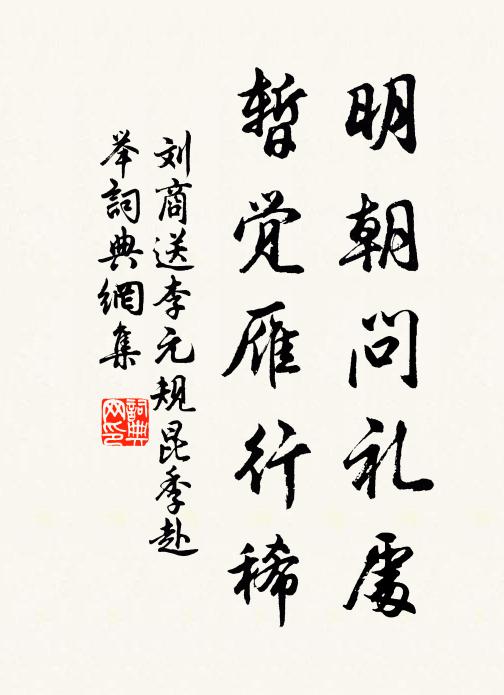 明朝问礼處
暂觉雁行稀
刘商送李元规昆季赴
举詞典網集
詞典網印